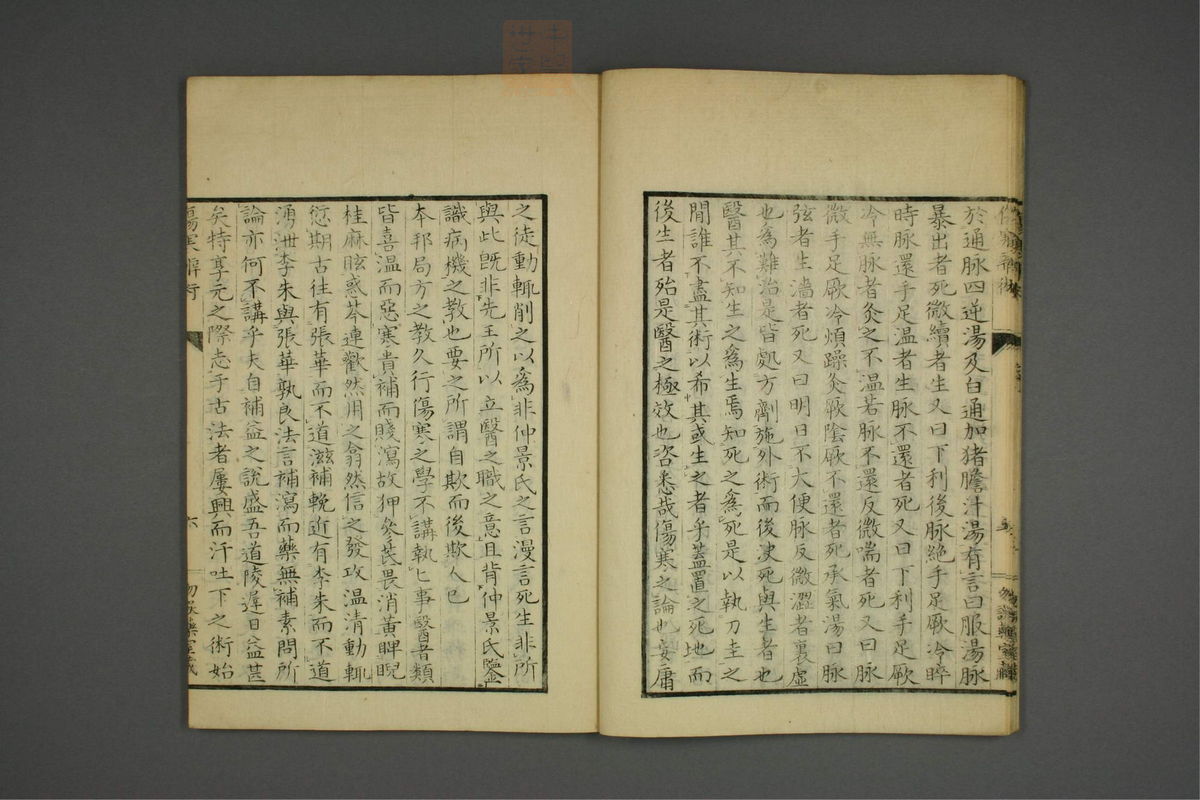 於通脉四逆湯及白通加猪膽汁湯有言曰服湯脉
暴出者死微續者生又曰下利後脉絶手足厥冷晬
時脉還手足温者生脉不還者死又曰下利手足厥
冷無脉者灸之不温若脉不還反微喘者死又曰脉
微手足厥冷煩躁灸厥陰厥不還者死承氣湯曰脉
弦者生濇者死又曰明日不大便脉反微澀者裏虚
也爲難治是皆處方劑施外術而後决死與生者也
醫其不知生之爲生焉知死之爲死是以執刀圭之
間誰不盡其術以希其或生之者乎葢置之死地而
後生者殆是醫之極效也咨悉哉傷寒之論也妄庸
之徒動輒削之以爲非仲景氏之言漫言死生非所
與此旣非先王所以立醫之職之意且背仲景氏鑒
識病機之教也要之所謂自欺而後欺人已
本邦局方之教久行傷寒之學不講執匕事醫者類
皆喜温而惡寒貴補而賤瀉故狎參茋畏消黄睥睨
桂麻眩惑芩連歡然用之翕然信之發攻温清動輒
愆期古徃有張華而不道滋補輓近有李朱而不道
湧泄李朱與張華孰良法言補瀉而藥無補素問所
論亦何不講乎夫自補益之說盛吾道陵遲日益甚
矣特享元之際志乎古法者屢興而汗吐下之術始
傷寒辨術
六